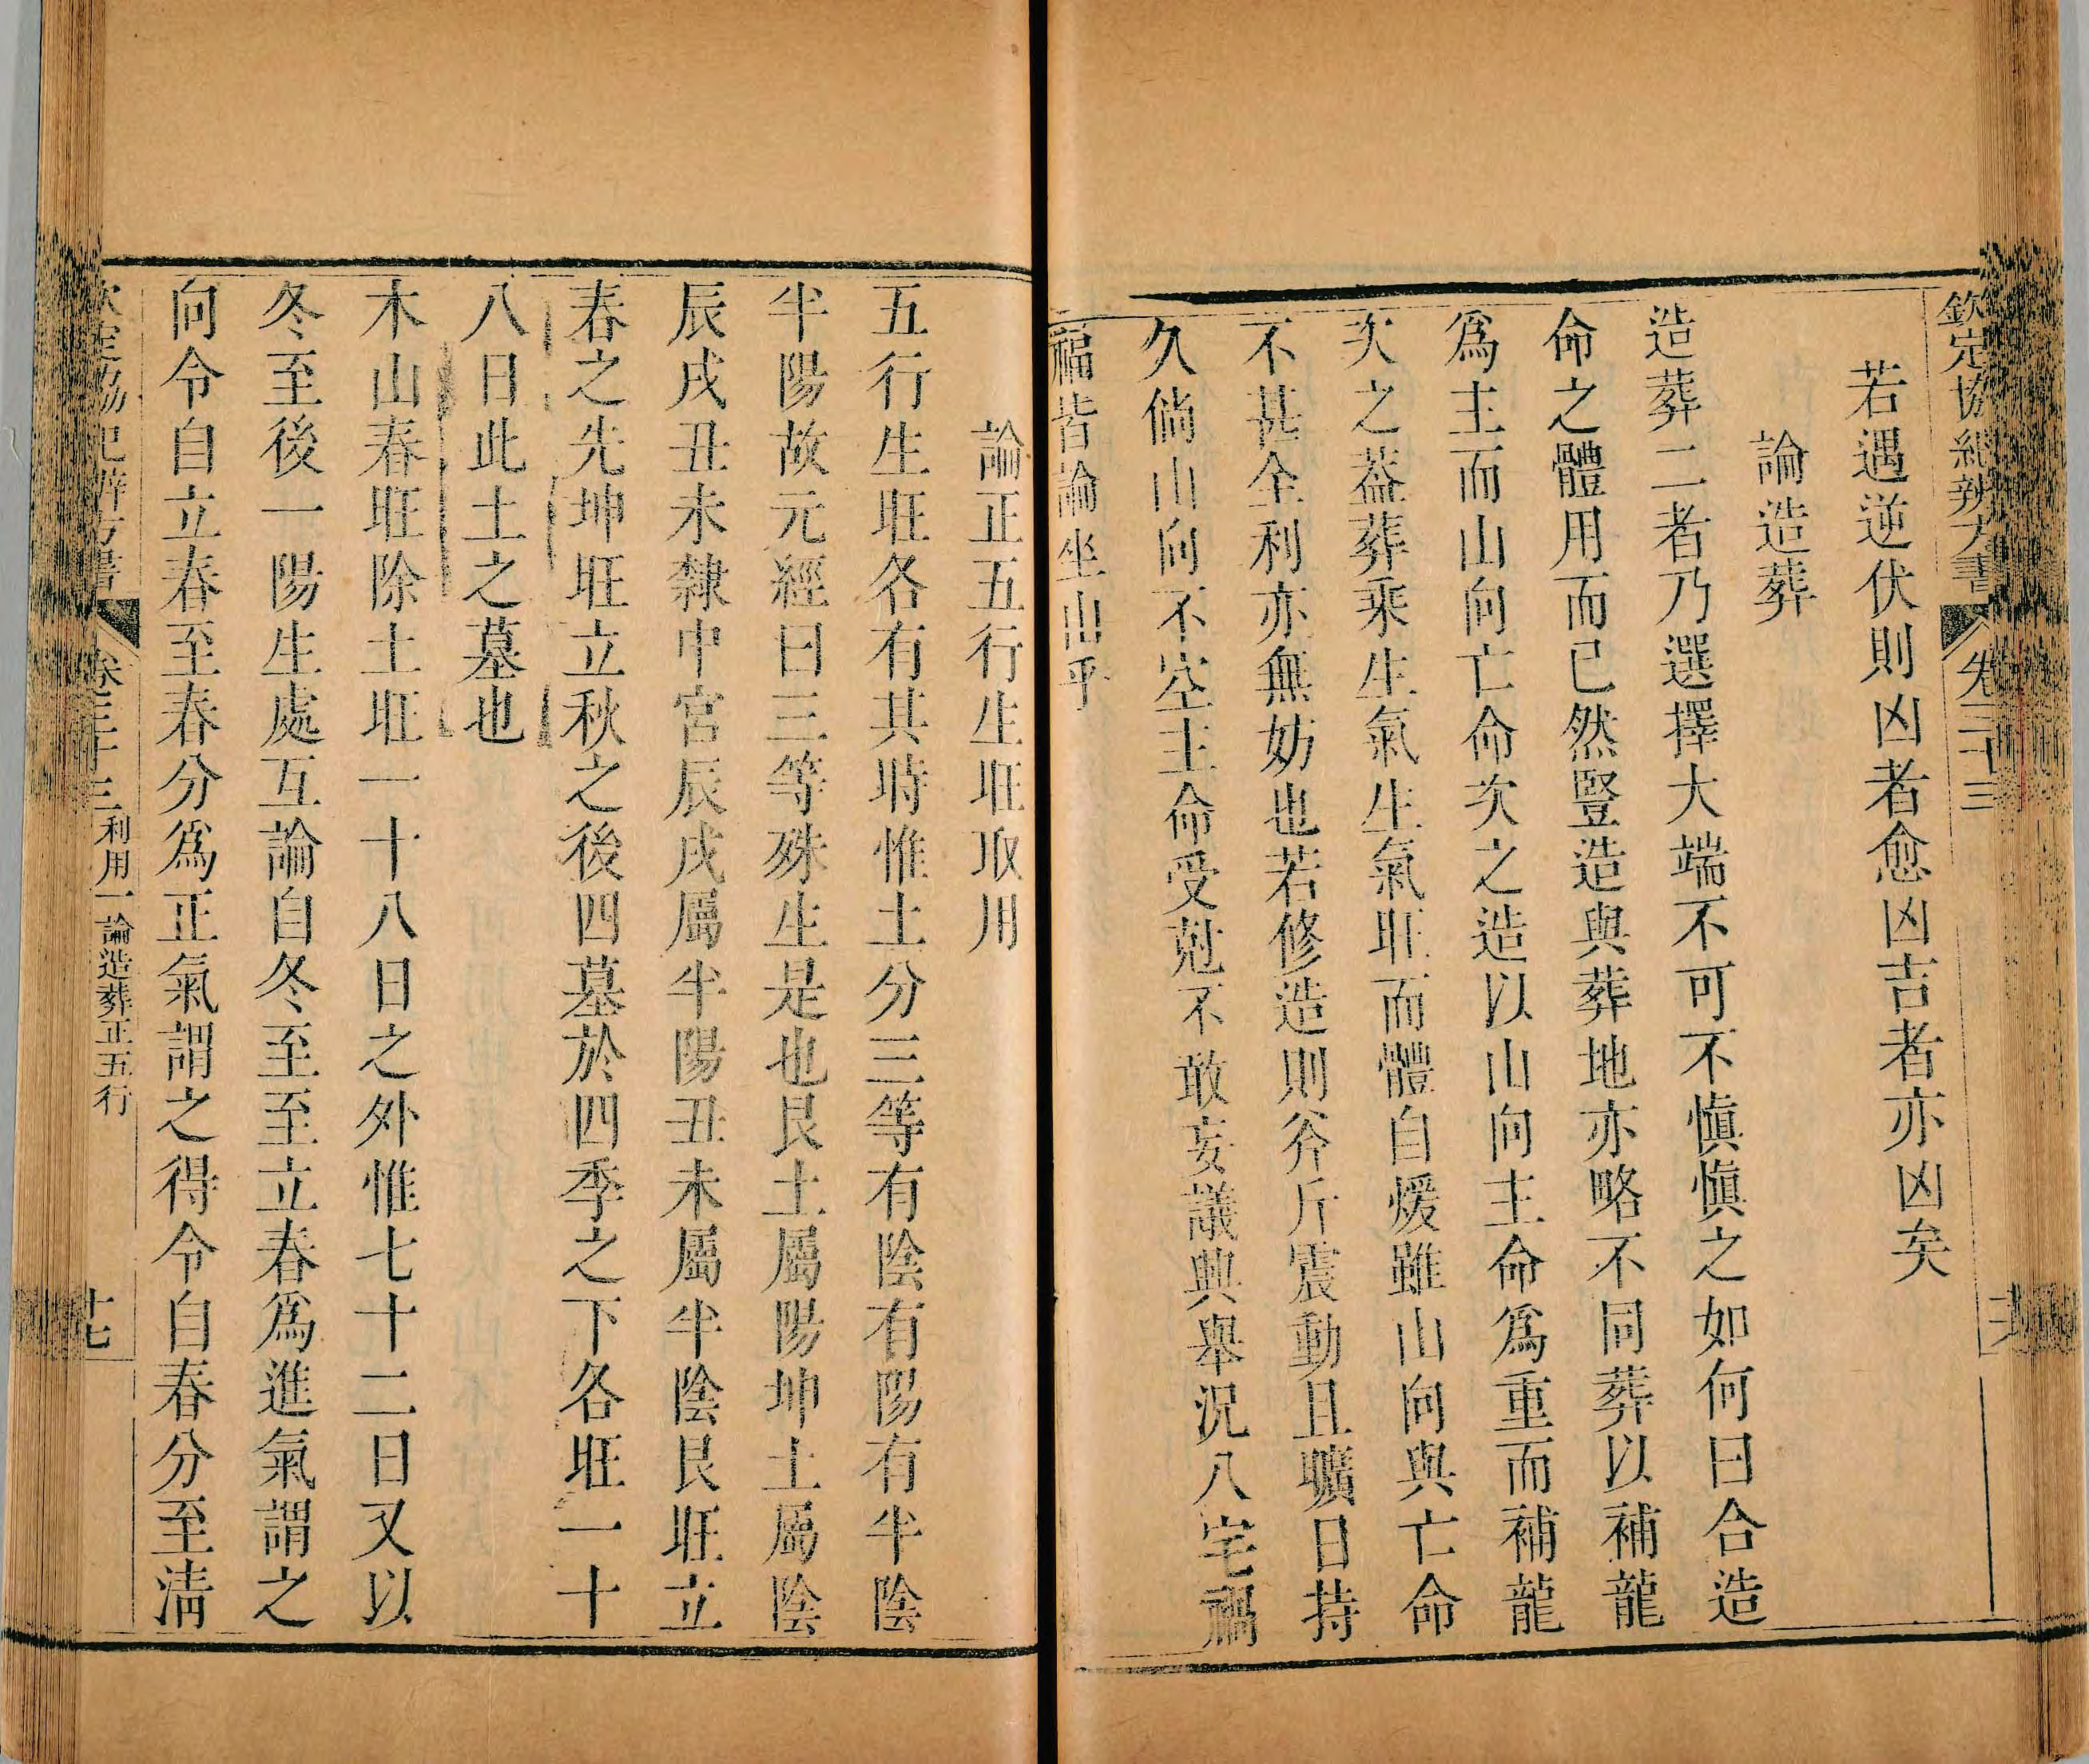 欽定協紀辨方書 卷三十三
若遇逆伏則凶者愈凶吉者亦凶矣
論造葬
造葬二者乃選擇大端不可不慎慎之如何曰合造
命之體用而已然豎造與葬地亦略不同葬以補龍
為主而山向亡命次之造以山向主命為重而補龍
次之葢葬乘生氣生氣旺而體自煖雖山向與亡命
不甚全利亦無妨也若修造則斧斤震動且曠日持
久倘山向不空主命受尅不敢妄議興舉況八宅禍
福皆論坐山乎
論正五行生旺取用
五行生旺各有其時惟土分三等有陰有陽有半陰
半陽故元經曰三等殊生是也艮土屬陽坤土屬陰
辰戌丑未隸中宮辰戌屬半陽丑未屬半陰艮旺立
春之先坤旺立秋之後四墓於四季之下各旺一十
八日此土之墓也
木山春旺除土旺一十八日之外惟七十二日又以
冬至後一陽生處互論自冬至至立春為進氣謂之
向令自立春至春分為正氣謂之得令自春分至清
欽定協紀辨方書 卷三十三 利用一論造葬正五行 十七